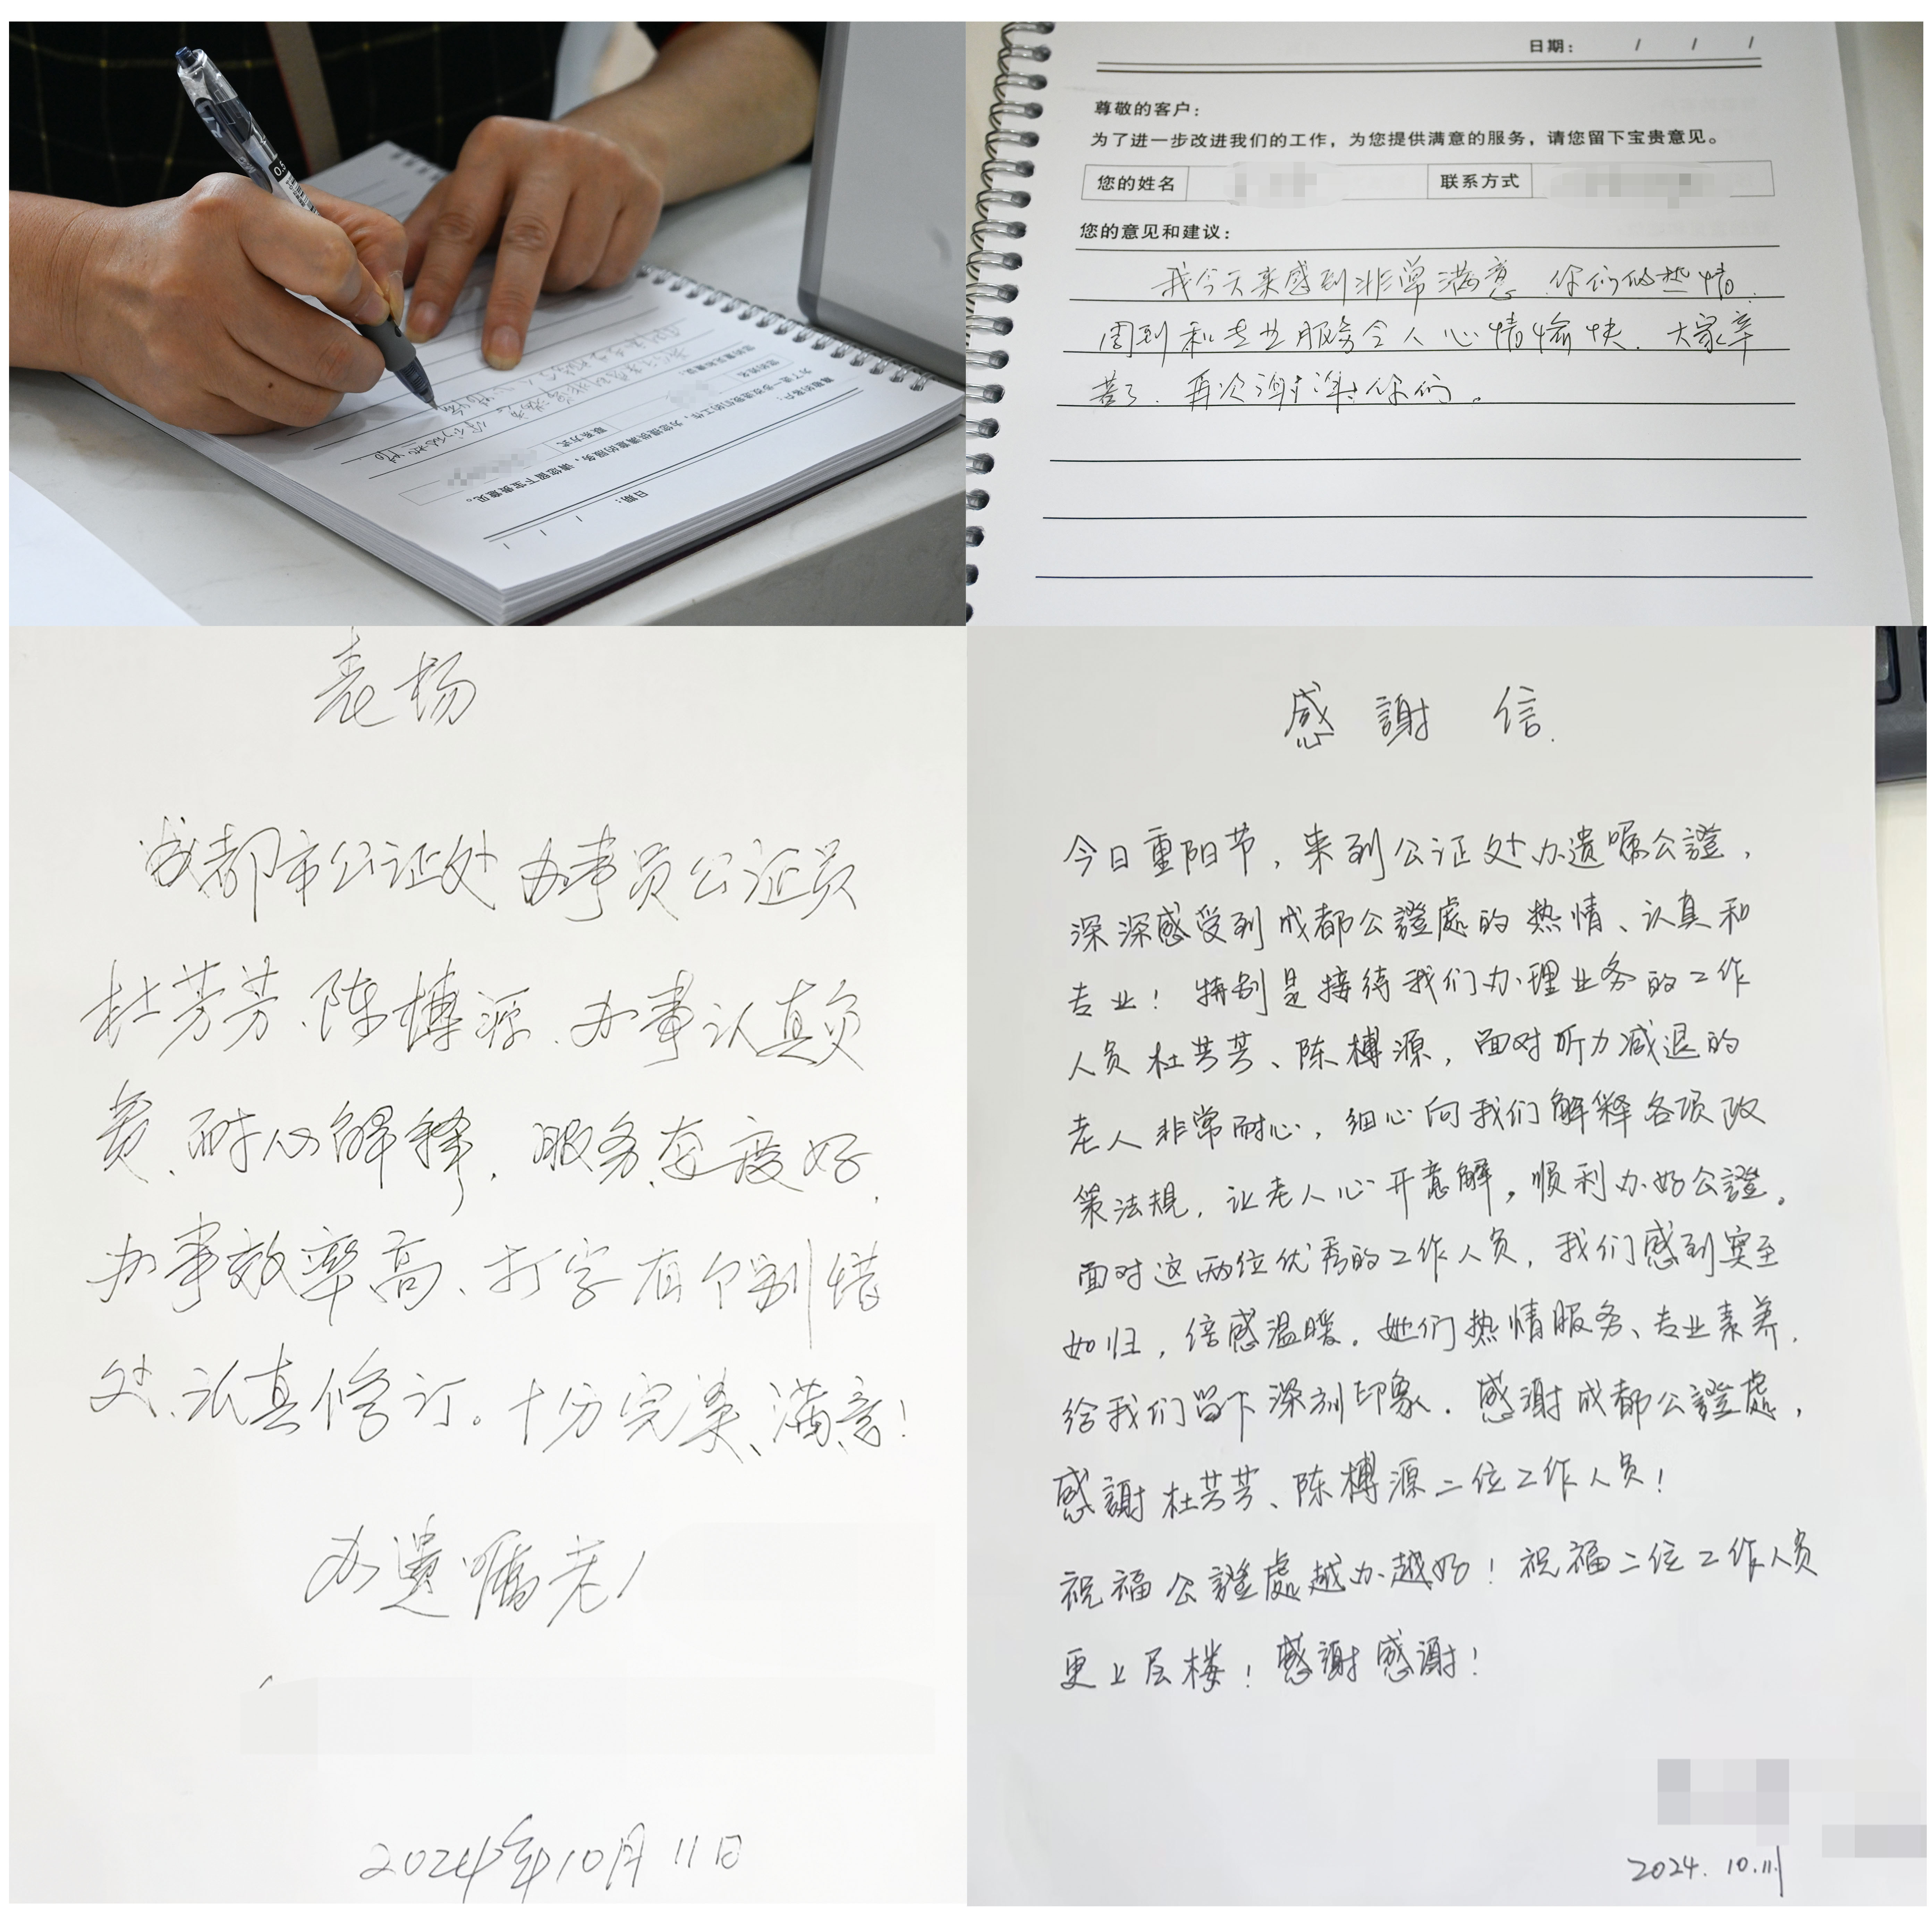 日期： / / /
尊敬的客户：
为了进一步改进我们的工作，为您提供满意的服务，请您留下宝贵意见。
您的姓名 联系方式
您的意见和建议：
我今天来感到非常满意 你们的热情.
周到和专业服务令人心情愉快. 大家辛
苦了. 再次谢谢你们。
表扬
成都市公证处办事员公证员
杜芳芳、陈榑源、办事认真负
责、耐心解释, 服务态度好,
办事效率高、打字有个别错
处、认真修订。十分完美、满意!
办遗嘱老人
2024年10月11日
感謝信.
今日重阳节，来到公证处办遗嘱公證，
深深感受到成都公證處的热情、认真和
专业！特别是接待我们办理业务的工作
人员杜芳芳、陈榑源，面对听力减退的
老人非常耐心，细心向我们解释各项政
策法规，让老人心开意解，顺利办好公證。
面对这两位优秀的工作人员，我们感到宾至
如归，倍感温暖。她们热情服务、专业素养，
给我们留下深刻印象。感謝成都公證處，
感謝杜芳芳、陈榑源二位工作人员！
祝福公證處越办越好！祝福二位工作人员
更上层楼！感謝感謝！
2024. 10.11
尊敬的客户：
为了进一步改进我们的工作，为您提供满意的服务，请您留下宝贵意见。
您的姓名 联系方式
日期： / / /
0.5